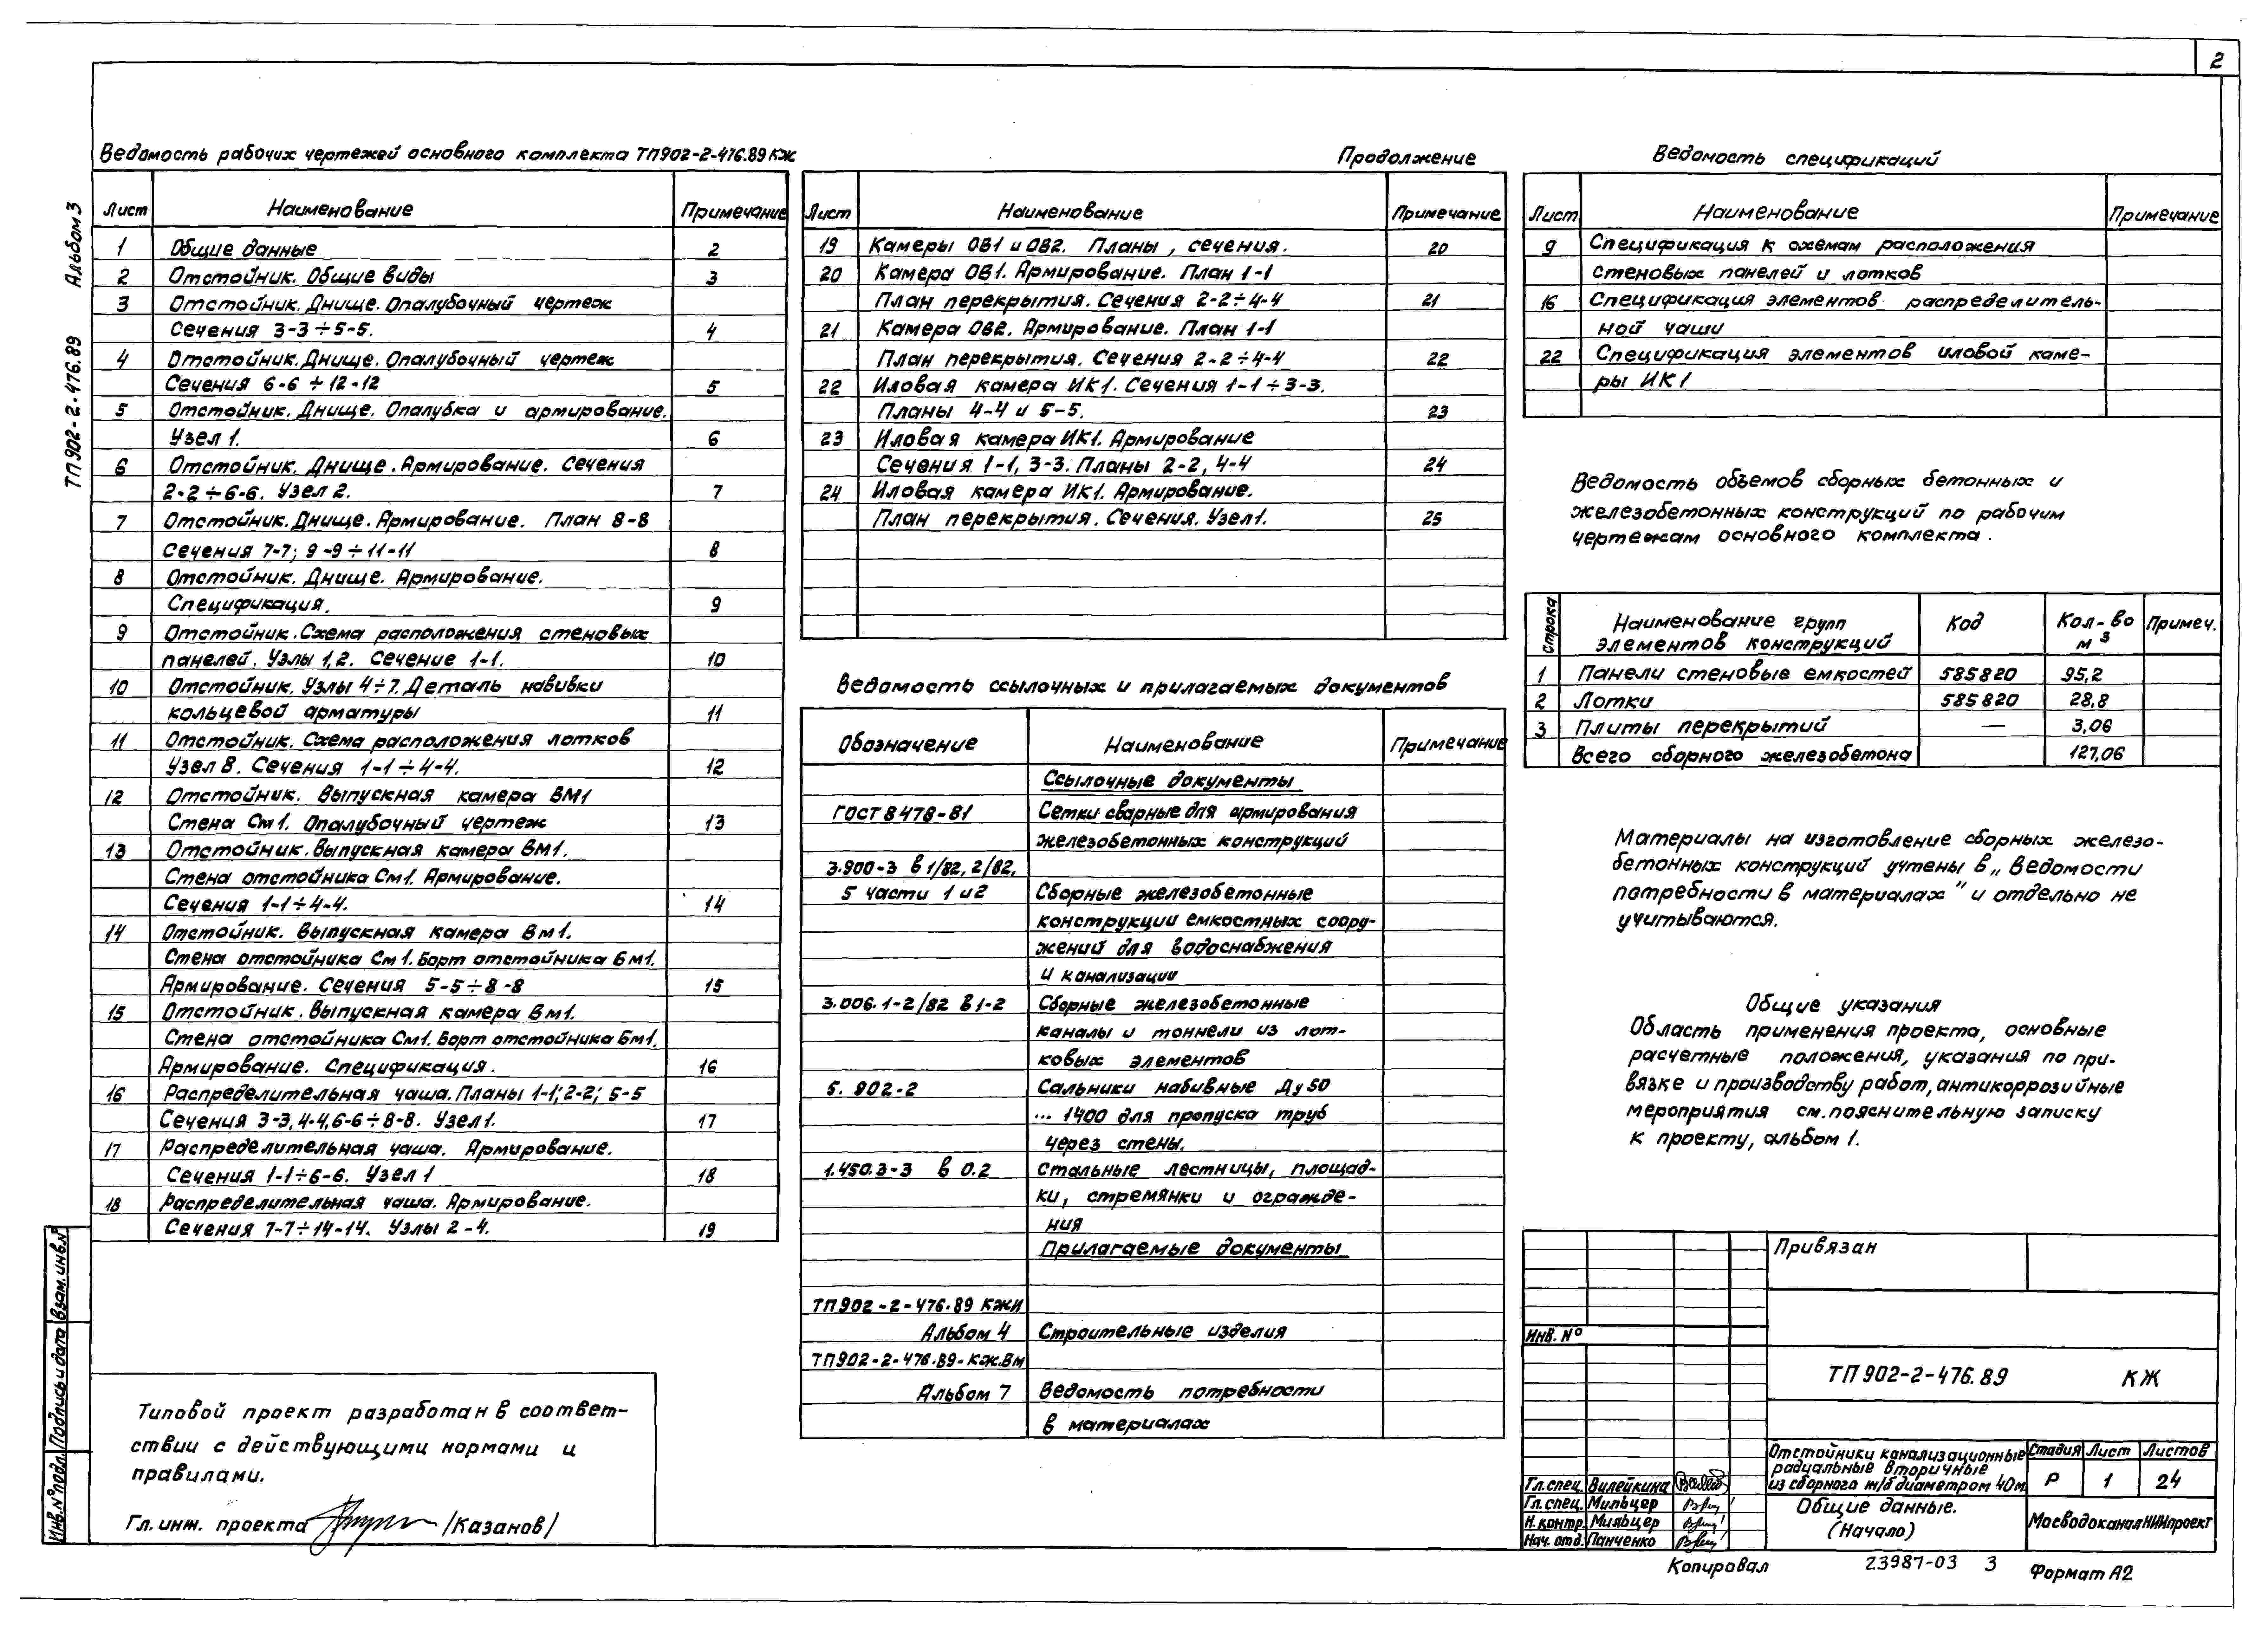 2
Ведомость рабочих чертежей основного комплекта ТП902-2-476.89 КЖ
Лист Наименование Примечание
1 Общие данные 2
2 Отстойник. Общие виды 3
3 Отстойник. Днище. Опалубочный чертеж
Сечения 3-3÷5-5. 4
4 Отстойник. Днище. Опалубочный чертеж
Сечения 6-6÷12-12 5
5 Отстойник. Днище. Опалубка и армирование.
Узел 1. 6
6 Отстойник. Днище. Армирование. Сечения
2-2÷6-6. Узел 2. 7
7 Отстойник. Днище. Армирование. План 8-8
Сечения 7-7; 9-9÷11-11 8
8 Отстойник. Днище. Армирование.
Спецификация. 9
9 Отстойник. Схема расположения стеновых
панелей. Узлы 1,2. Сечение 1-1. 10
10 Отстойник. Узлы 4÷7. Деталь навивки
кольцевой арматуры 11
11 Отстойник. Схема расположения лотков
Узел 8. Сечения 1-1÷4-4. 12
12 Отстойник. Выпускная камера ВМ1
Стена См1. Опалубочный чертеж 13
13 Отстойник. Выпускная камера ВМ1.
Стена отстойника См1. Армирование.
Сечения 1-1÷4-4. 14
14 Отстойник. Выпускная камера Вм1.
Стена отстойника См1. Борт отстойника Бм1.
Армирование. Сечения 5-5÷8-8 15
15 Отстойник. Выпускная камера Вм1.
Стена отстойника См1. Борт отстойника Бм1.
Армирование. Спецификация. 16
16 Распределительная чаша. Планы 1-1; 2-2; 5-5
Сечения 3-3, 4-4, 6-6÷8-8. Узел 1. 17
17 Распределительная чаша. Армирование.
Сечения 1-1÷6-6. Узел 1 18
18 Распределительная чаша. Армирование.
Сечения 7-7÷14-14. Узлы 2-4. 19
Продолжение
Лист Наименование Примечание
19 Камеры ОВ1 и ОВ2. Планы, сечения. 20
20 Камера ОВ1. Армирование. План 1-1
План перекрытия. Сечения 2-2÷4-4 21
21 Камера ОВ2. Армирование. План 1-1
План перекрытия. Сечения 2-2÷4-4 22
22 Иловая камера ИК1. Сечения 1-1÷3-3.
Планы 4-4 и 5-5. 23
23 Иловая камера ИК1. Армирование
Сечения 1-1, 3-3. Планы 2-2, 4-4 24
24 Иловая камера ИК1. Армирование.
План перекрытия. Сечения. Узел 1. 25
Ведомость ссылочных и прилагаемых документов
Обозначение Наименование Примечание
Ссылочные документы
ГОСТ 8478-81 Сетки сварные для армирования
железобетонных конструкций
3.900-3 в 1/82, 2/82,
5 части 1 и 2 Сборные железобетонные
конструкции емкостных соору-
жений для водоснабжения
и канализации
3.006.1-2/82 в1-2 Сборные железобетонные
каналы и тоннели из лот-
ковых элементов
5.902-2 Сальники набивные Ду 50
... 1400 для пропуска труб
через стены.
1.450.3-3 в 0.2 Стальные лестницы, площад-
ки, стремянки и огражде-
ния
Прилагаемые документы
ТП902-2-476.89 КЖИ
Альбом 4 Строительные изделия
ТП902-2-476.89-КЖ.Вм
Альбом 7 Ведомость потребности
в материалах
Ведомость спецификаций
Лист Наименование Примечание
9 Спецификация к схемам расположения
стеновых панелей и лотков
16 Спецификация элементов распределитель-
ной чаши
22 Спецификация элементов иловой каме-
ры ИК1
Ведомость объемов сборных бетонных и
железобетонных конструкций по рабочим
чертежам основного комплекта.
Строка Наименование групп элементов конструкций Код Кол-во м³ Примеч.
1 Панели стеновые емкостей 585820 95,2
2 Лотки 585820 28,8
3 Плиты перекрытий — 3,06
Всего сборного железобетона 127,06
Материалы на изготовление сборных железо-
бетонных конструкций учтены в „Ведомости
потребности в материалах" и отдельно не
учитываются.
Общие указания
Область применения проекта, основные
расчетные положения, указания по при-
вязке и производству работ, антикоррозийные
мероприятия см. пояснительную записку
к проекту, альбом 1.
ТП902-2-476.89 Альбом 3
Инв.№подл. Подпись и дата Взам.инв.№
Типовой проект разработан в соответ-
ствии с действующими нормами и
правилами.
Гл. инж. проекта /Казанов/
Привязан
Инв. №
ТП 902-2-476.89 КЖ
Гл.спец. Вилейкина
Гл.спец. Мильцер
Н.контр. Мильцер
Нач. отд. Панченко
Отстойники канализационные
радиальные вторичные
из сборного ж/б диаметром 40м
Стадия Лист Листов
Р 1 24
Общие данные.
(Начало)
МосводоканалНИИпроект
Копировал 23987-03 3 Формат А2